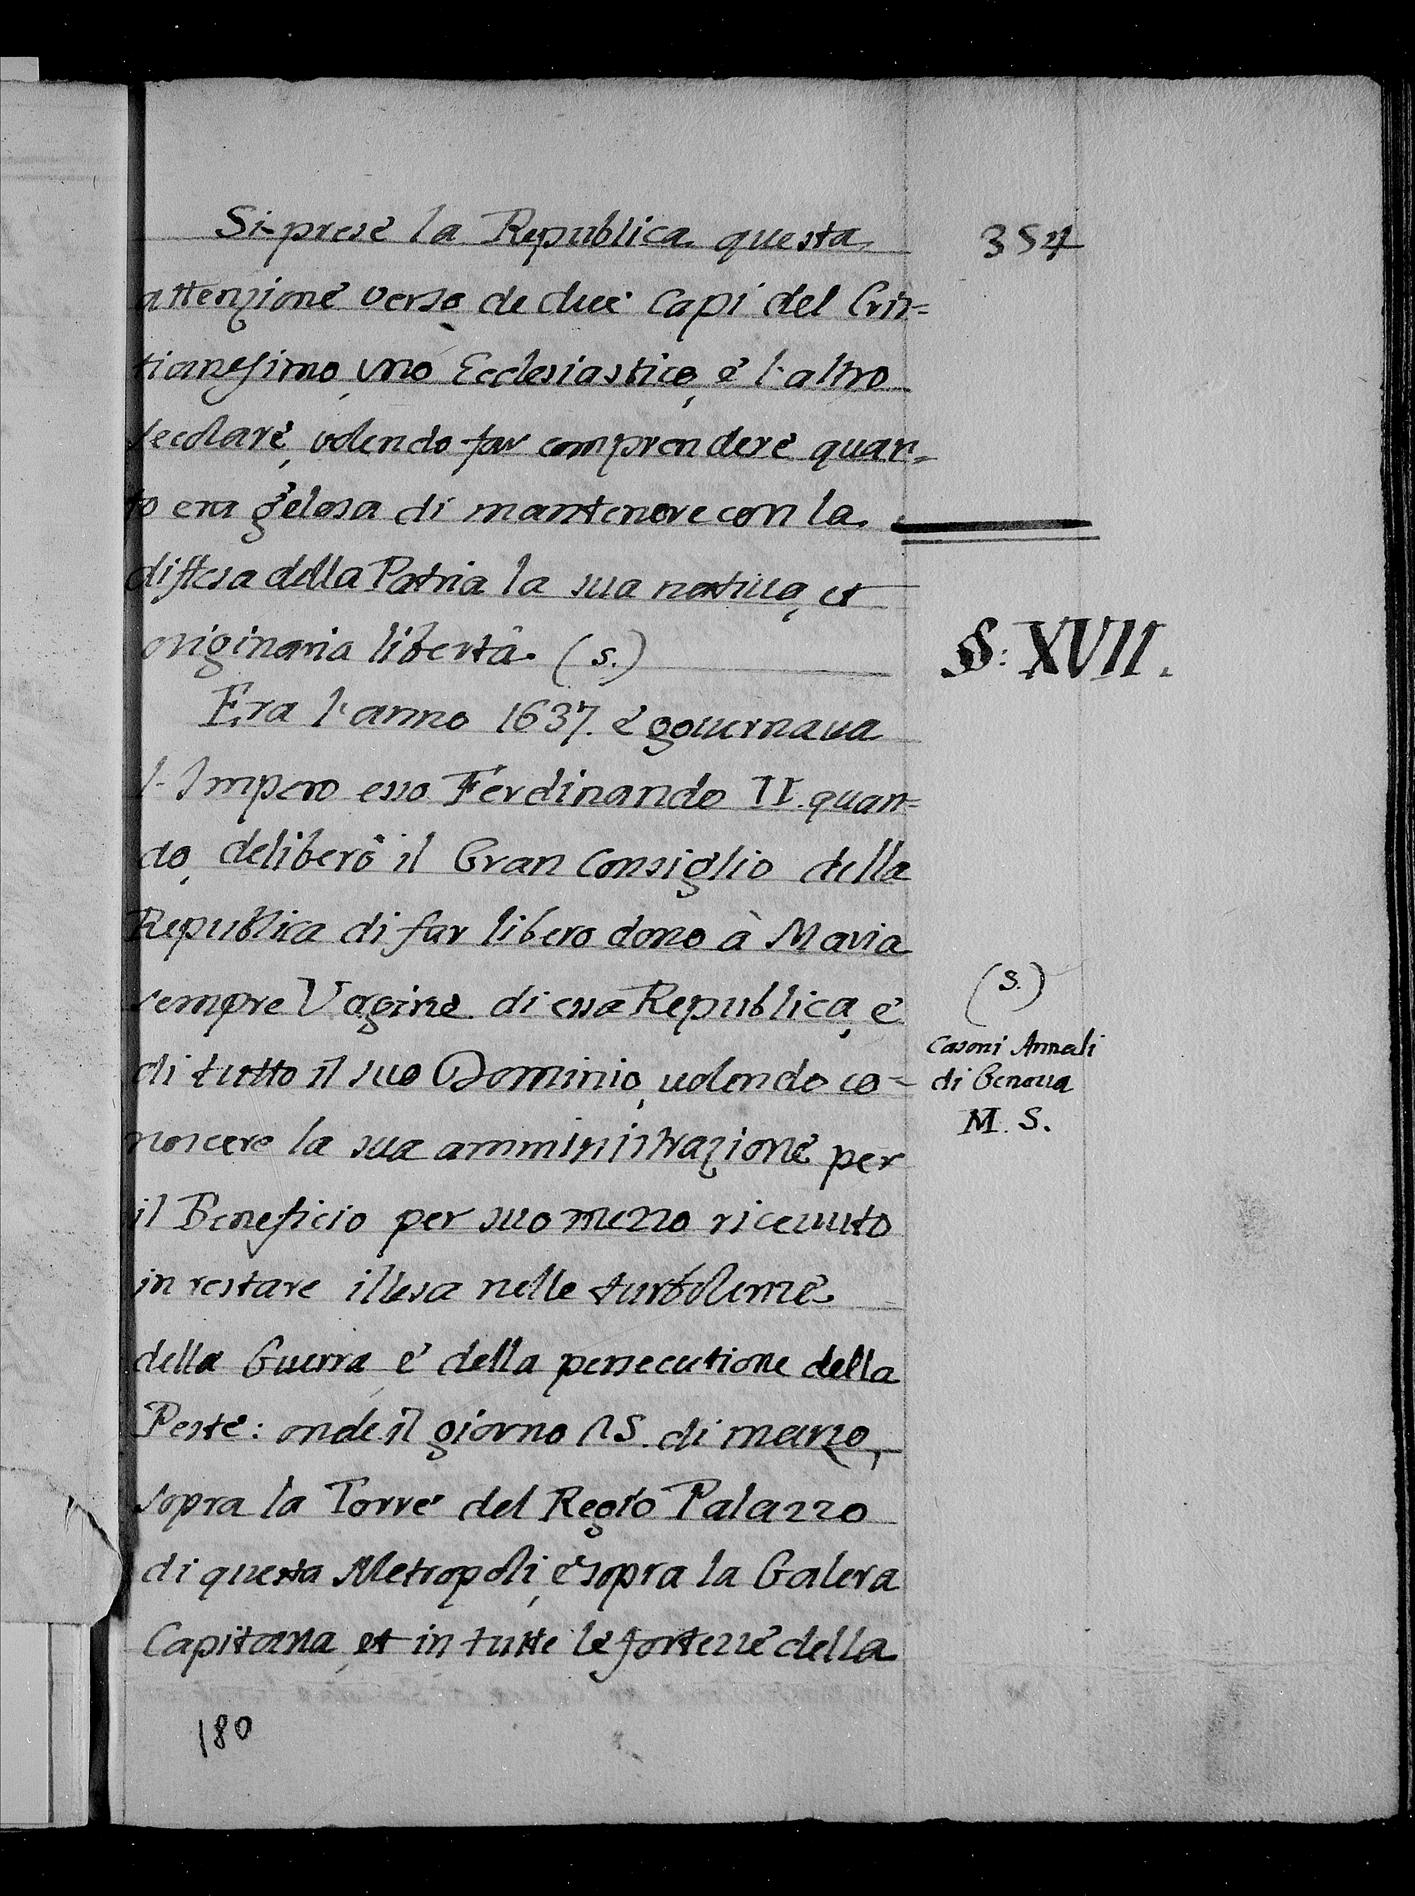 354
Si prese la Republica questa
attenzione verso de due Capi del Cris=
tianesimo, uno Ecclesiastico, è l'altro
secolare, volendo far comprendere quan=
to era gelosa di mantenere con la
diffesa della Patria la sua nativa, et
originaria libertà. (s.)
§: XVII.
Era l'anno 1637. è gouernaua
l'Impero esso Ferdinando II. quan=
do, deliberò il Gran Consiglio della
Republica di far libero dono à Maria
sempre Vagine di essa Republica, è
di tutto il suo Dominio, uolendo co=
noscere la sua amministrazione per
il Beneficio per suo mezzo riceuuto
in restare illesa nelle turbolenze
della Guerra, è della persecutione della
Peste: onde il giorno 25. di marzo,
sopra la Torre del Regio Palazzo
di questa Metropoli, è sopra la Galera
Capitana, et in tutte le fortezze della
(s.)
Casoni Annali
di Genoua
M. S.
180